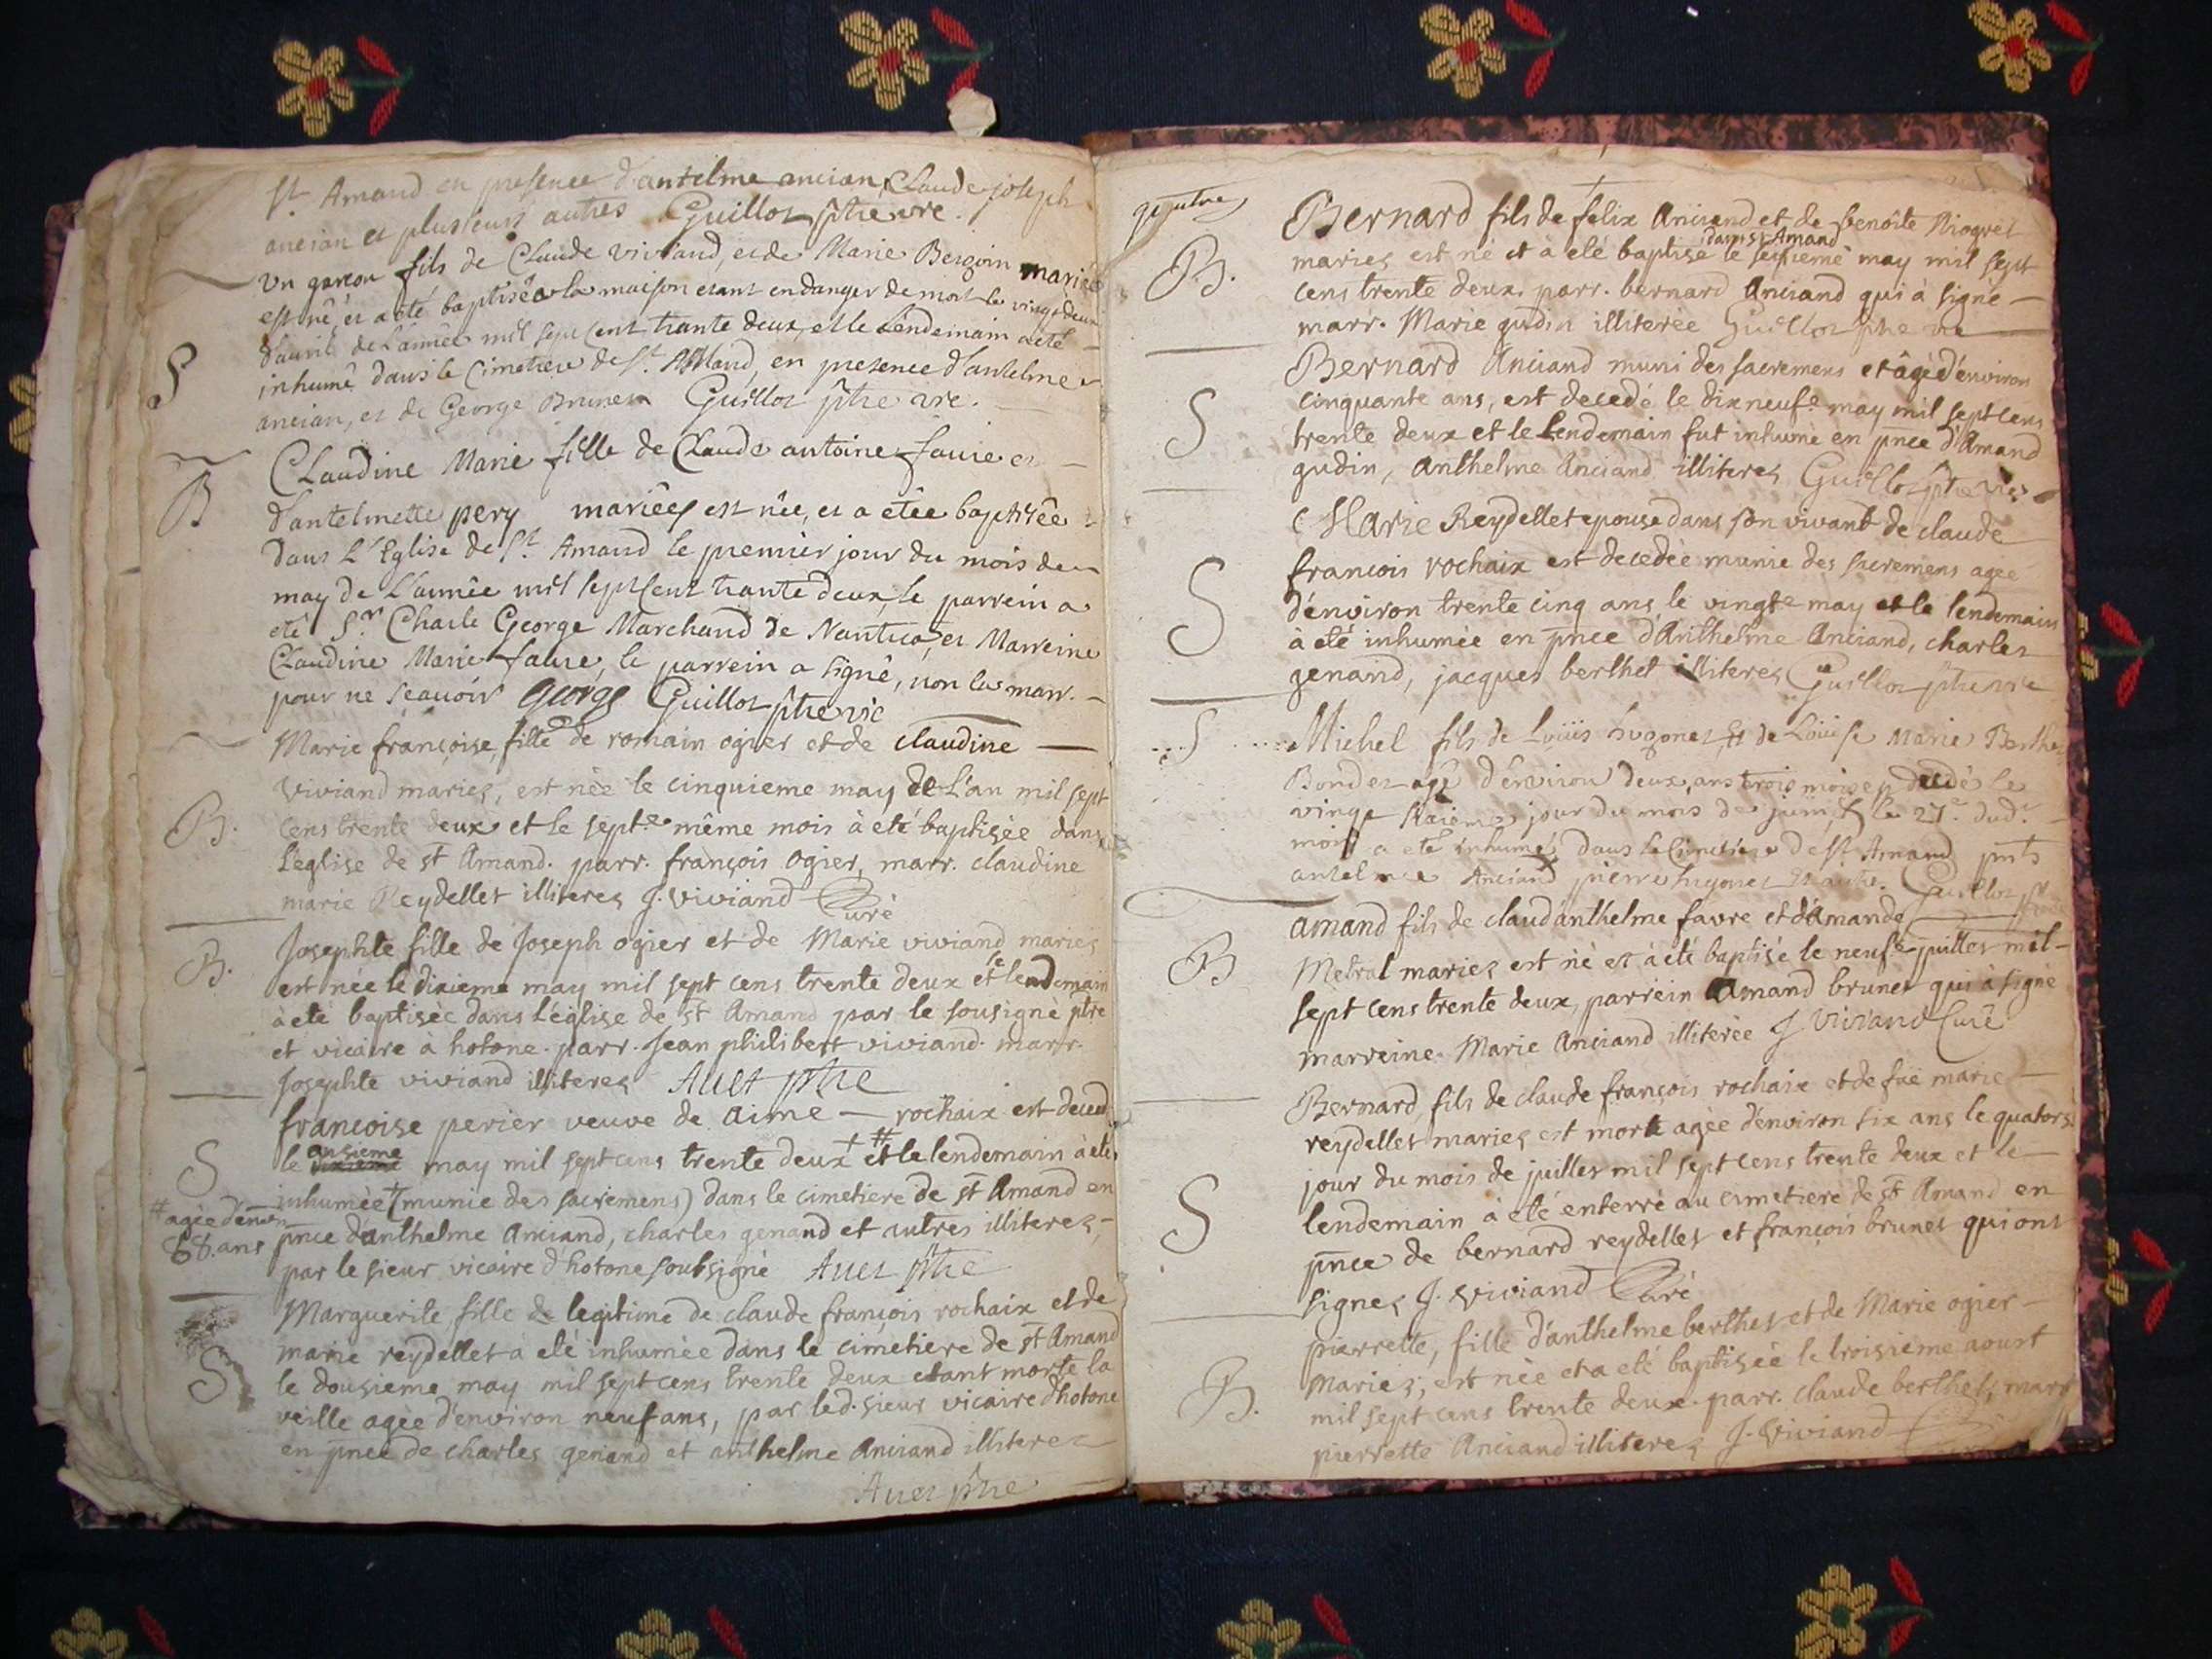 St Amand en presence d'antelme ancian, Claude joseph
ancian et plusieurs autres Guillot ptre vre.
Un garcon fils de Claude Viviand, et de Marie Bergoin mariés
est nê, et a eté baptisê a la maison etant en danger de mort le vingt deux
d'avril de l'année mil sept cent trante deux, et le lendemain a eté
S
inhumê dans le Cimetiere de St. Amand, en presence d'antelme
ancian, et de George Brunet Guillot ptre vre.
Claudine Marie fille de Claude antoine favre et
B
d'antelmette pery mariés est née, et a etêe baptisêe
dans L'Eglise de St. Amand le premier jour du mois de
may de L'année mil sept cent trante deux, le parrein a
eté Sr. Charle George Marchand de Nantua, et Marreine
Claudine Marie favre, le parrein a signê, non la marr.
pour ne scavoir George Guillot ptre vic
Marie françoise, fille de romain ogier et de claudine
Viviand mariez, est née le cinquieme may de L'an mil sept
B.
cens trente deux et le septe même mois à eté baptisée dans
L'eglise de st Amand. parr. françois ogier, marr. claudine
marie Reydellet illiterez J. Viviand Curé
Josephte fille de Joseph ogier et de Marie viviand mariez
B.
est née le dixieme may mil sept cens trente deux et le lendemain
à eté baptisée dans L'église de st Amand par le sousigné ptre
et vicaire à hotone. parr. Jean philibert viviand. marr.
Josephte viviand illiterez Auet ptre
francoise perier veuve de aime — rochaix est deced
S
le onsieme may mil sept cens trente deux + # et le lendemain à eté
inhumée + (munie des sacremens) dans le cimetiere de st Amand en
# agée d'envon
68. ans
pnce d'anthelme Anciand, charles genand et autres illiterez,
par le sieur vicaire d'hotone soubsigné Auet ptre
Marguerite fille de legitime de claude françois rochaix et de
marie reydellet à eté inhumée dans le cimetiere de st Amand
S
le dousieme may mil sept cens trente deux etant morte la
veille agée d'environ neuf ans, par led. sieur vicaire d'hotone
en pnce de charles genand et anthelme Anciand illiterez
Auet ptre
Bernard fils de felix Anciand et de benoite
B.
mariez est né et à eté baptisé dans st Amand le may mil sept
cens trente deux. parr. bernard Anciand qui à signé
marr. Marie gudin illiterée Guillot ptre vre
Bernard Anciand muni des sacremens et âgé d'environ
S
cinquante ans, est decedé le dixneufe may mil sept cens
trente deux et le Lendemain fut inhumé en pnce d'Amand
gudin, Anthelme Anciand illiterez Guillot ptre vre
Marie Reydellet epouse dans son vivant de claude
S
francois rochaix est decedée munie des sacremens agée
d'environ trente cinq ans le vingte may et le lendemain
à eté inhumée en pnce d'Anthelme Anciand, charles
genand, jacques berthet illiterez Guillot ptre vre
S
Michel fils de Loüis hugonet, et de Loüise Marie Berthet
Bondet agé d'environ deux ans trois mois est decedé le
vingt sixieme jour du mois de juin, et le 27e. dud.
mois a eté inhumé dans le Cimetiere de st. Amand pnts
antelme Anciand pierre hugonet et autre. Guillot ptre
amand fils de claud'anthelme favre et d'Amande
B
Metral mariez est né et à eté baptisé le neufe juillet mil
sept cens trente deux, parrein Amand brunet qui à signé
marreine Marie Anciand illiterée J Viviand Curé
Bernard, fils de claude françois rochaix et de füe marie
reydellet mariez est mort agée d'environ six ans le quatorz
S
jour du mois de juillet mil sept cens trente deux et le
lendemain à eté enterré au cimetiere de st Amand en
pnce de bernard reydellet et françois brunet qui ont
signez J. Viviand Curé
pierrette, fille d'anthelme berthet et de Marie ogier
B.
Mariez, est née et a eté baptisée le troisieme aoust
mil sept cens trente deux. parr. claude berthet, marr
pierrette Anciand illiterez J. Viviand